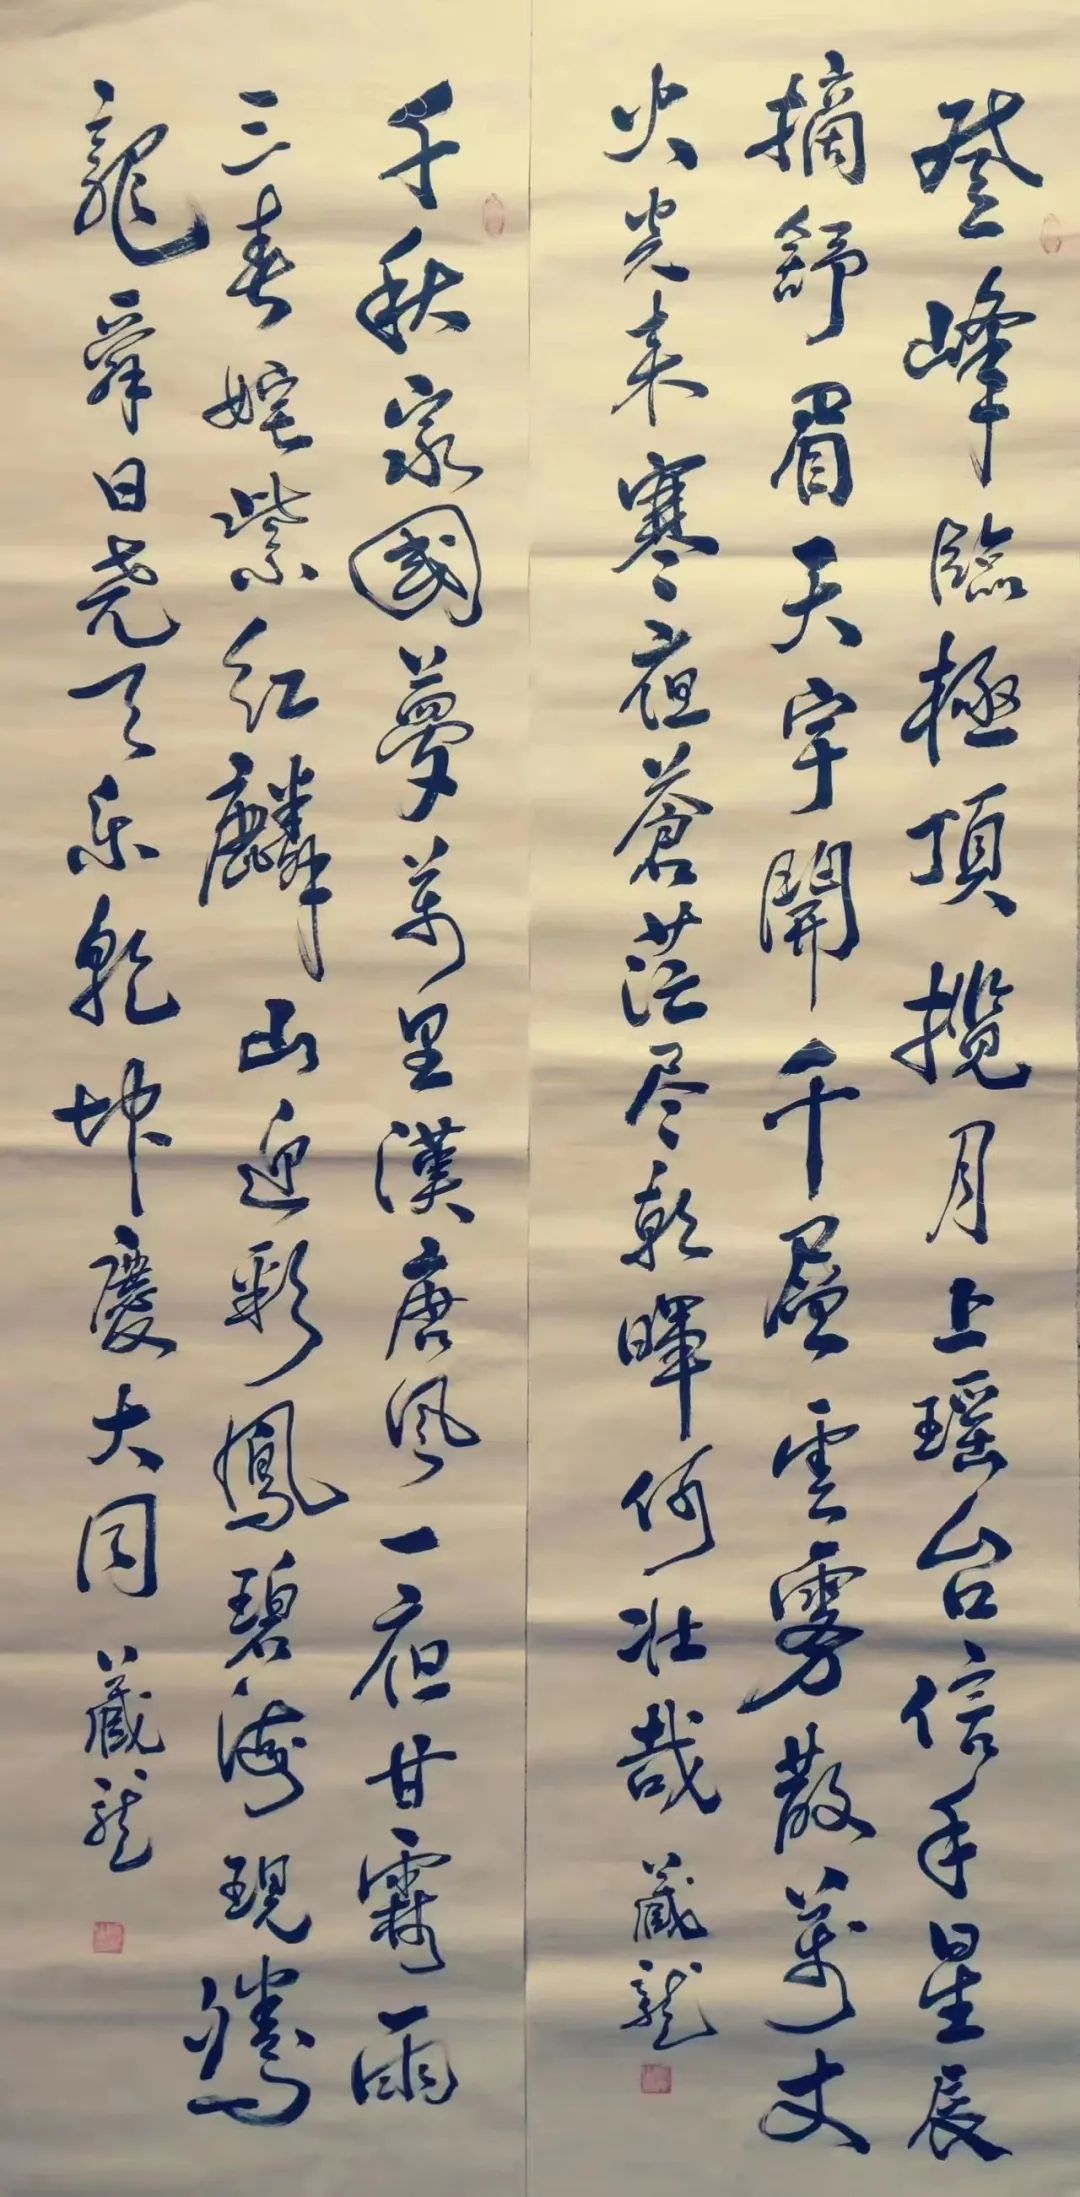 登峰臨極頂攬月上瑶台信手星辰
摘舒眉天宇開千層雲霧散萬丈
火光来寒夜蒼茫尽乾暉何壮哉
藏龍
千秋家國夢萬里漢唐風一夜甘霖雨
三春姹紫紅麟山迎彩鳳碧海現騰
龍舜日尧天乐乾坤慶大同
藏龍